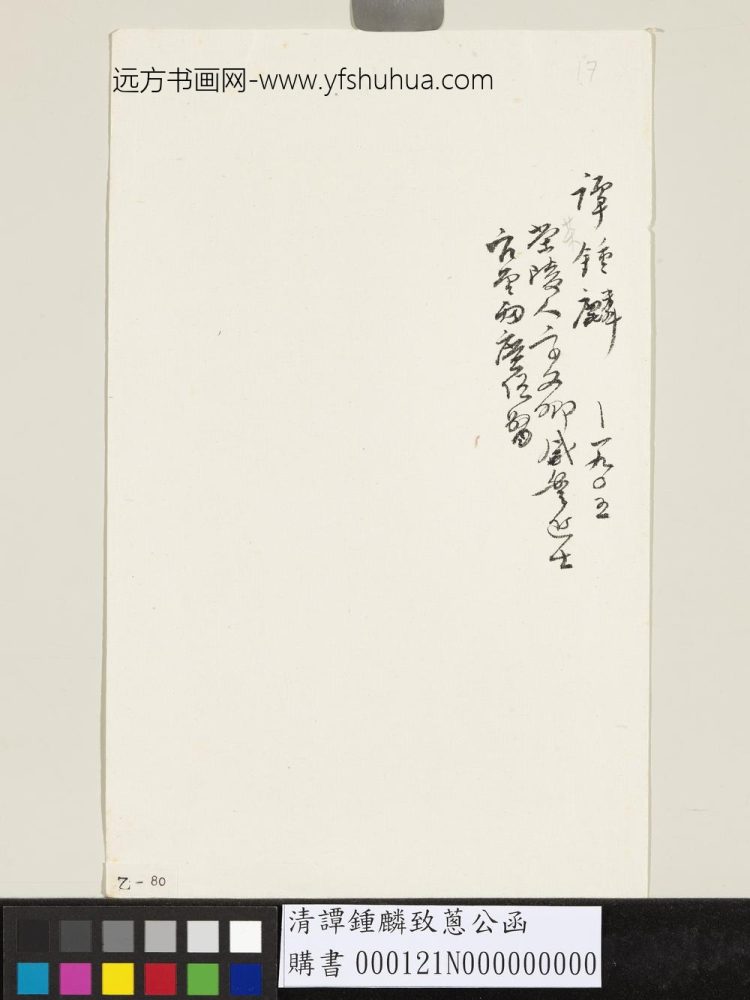 远方书画网-www.yfshuhua.com
17
譚鍾麟 — 一九〇五
茶
茶陵人字文卿咸豐進士
官至兩廣總督
乙-80
清譚鍾麟致蔥公函
購書 000121N000000000